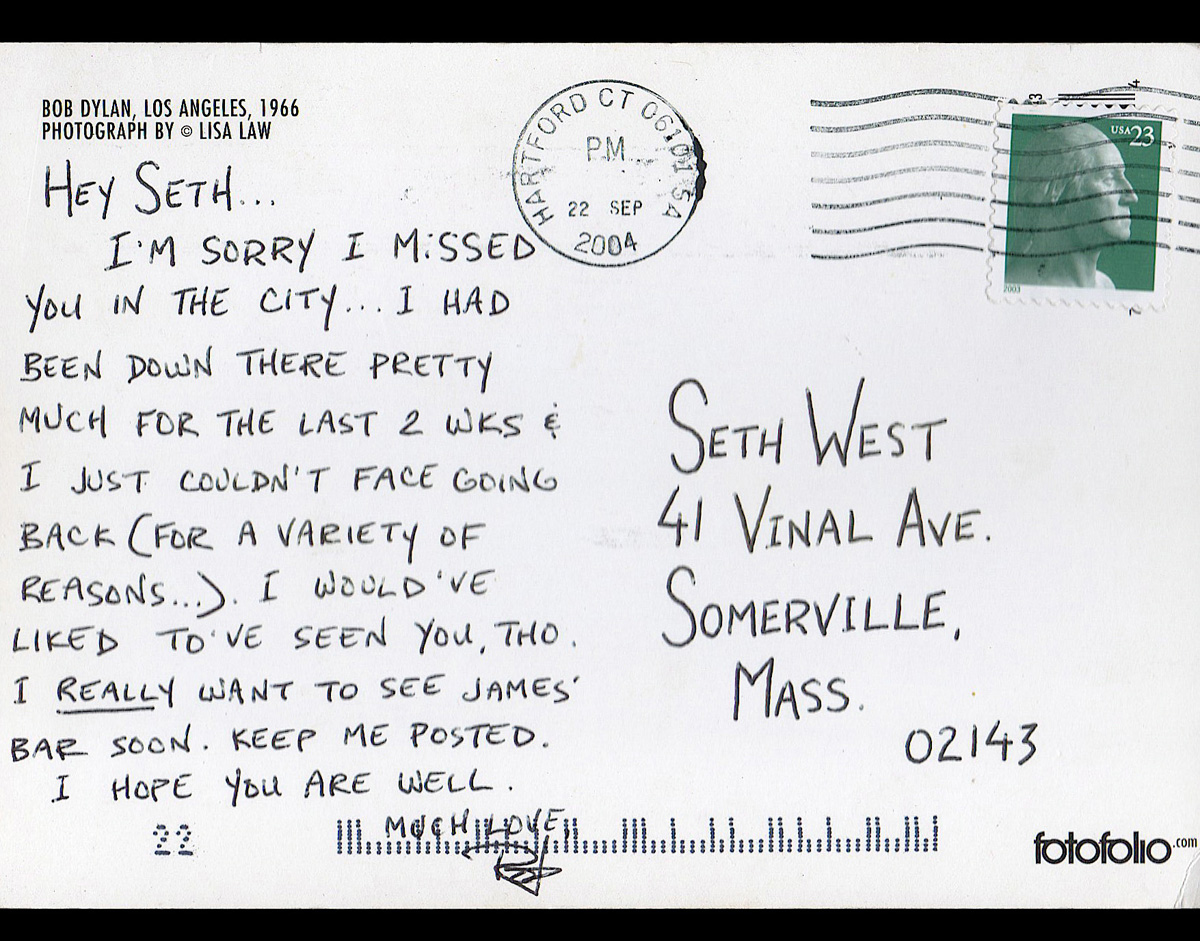 BOB DYLAN, LOS ANGELES, 1966
PHOTOGRAPH BY © LISA LAW
HEY SETH...
I'M SORRY I MISSED
YOU IN THE CITY... I HAD
BEEN DOWN THERE PRETTY
MUCH FOR THE LAST 2 WKS &
I JUST COULDN'T FACE GOING
BACK (FOR A VARIETY OF
REASONS...). I WOULD'VE
LIKED TO'VE SEEN YOU, THO.
I REALLY WANT TO SEE JAMES'
BAR SOON. KEEP ME POSTED.
I HOPE YOU ARE WELL.
MUCH LOVE,
22
HARTFORD CT 06101
PM
22 SEP
2004
USA 23
2003
SETH WEST
41 VINAL AVE.
SOMERVILLE,
MASS.
02143
fotofolio.com